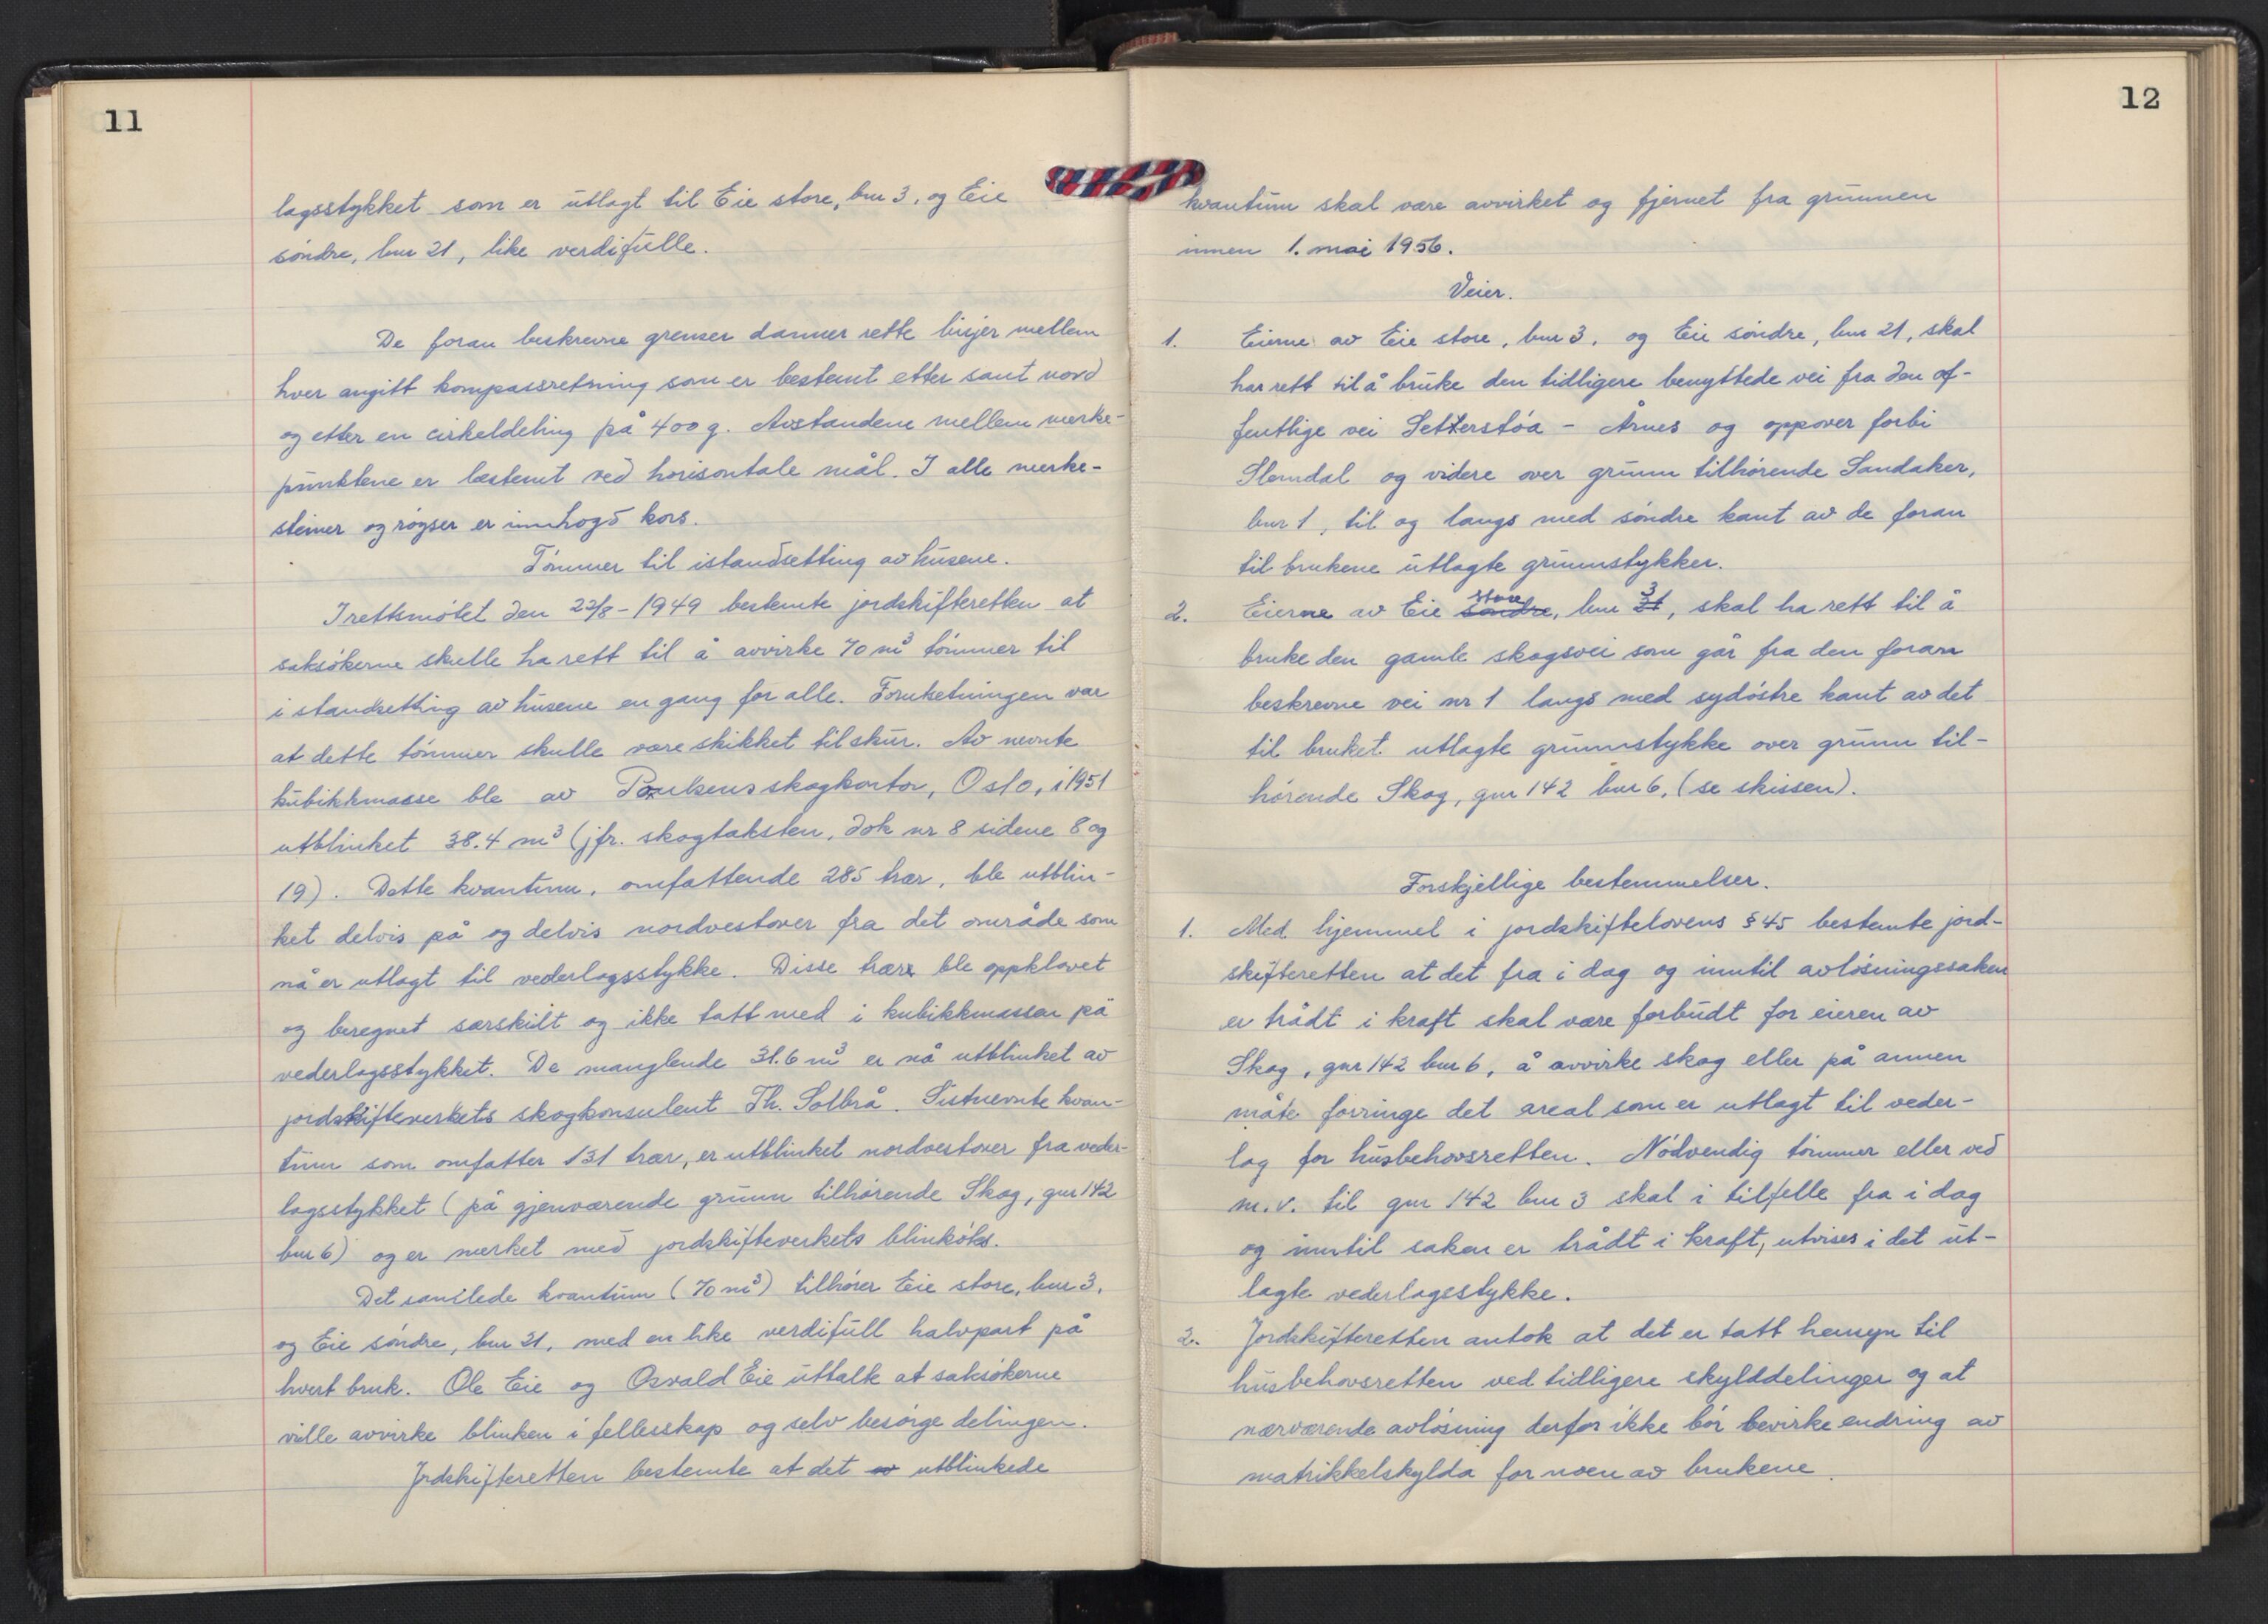 11
lagsstykket som er utlagt til Eie store, bnr 3, og Eie
søndre, bnr 21, like verdifulle.
De foran beskrevne grenser danner rette linjer mellem
hver angitt kompassretning som er bestemt etter sant nord
og etter en cirkeldeling på 400 g. Avstandene mellem merke-
punktene er bestemt ved horisontale mål. I alle merke-
steiner og røyser er innhogd kors.
Tømmer til istandsetting av husene.
I rettsmøtet den 22/8-1949 bestemte jordskifteretten at
saksøkerne skulle ha rett til å avvirke 70 m³ tømmer til
istandsetting av husene en gang for alle. Forutsetningen var
at dette tømmer skulle være skikket til skur. Av nevnte
kubikkmasse ble av Paulsens skogkontor, Oslo, i 1951
utblinket 38.4 m³ (jfr. skogtaksten, dok nr 8 sidene 8 og
19). Dette kvantum, omfattende 285 trær, ble utblin-
ket delvis på og delvis nordvestover fra det område som
nå er utlagt til vederlagsstykke. Disse trær ble oppklavet
og beregnet særskilt og ikke tatt med i kubikkmassen på
vederlagsstykket. De manglende 31.6 m³ er nå utblinket av
jordskifteverkets skogkonsulent Th. Solbrå. Sistnevnte kvan-
tum som omfatter 131 trær, er utblinket nordvestover fra veder-
lagsstykket (på gjenværende grunn tilhørende Skog, gnr 142
bnr 6) og er merket med jordskifteverkets blinkøks.
Det samlede kvantum (70 m³) tilhører Eie store, bnr 3,
og Eie søndre, bnr 21, med en like verdifull halvpart på
hvert bruk. Ole Eie og Osvald Eie uttalte at saksøkerne
ville avvirke blinken i fellesskap og selv besørge delingen.
Jrdskifteretten bestemte at det av utblinkede
12
kvantum skal være avvirket og fjernet fra grunnen
innen 1. mai 1956.
Veier.
1. Eierne av Eie store, bnr 3, og Eie søndre, bnr 21, skal
har rett til å bruke den tidligere benyttede vei fra den of-
fentlige vei Setterstøa - Årnes og oppover forbi
Slemdal og videre over grunn tilhørende Sandaker,
bnr 1, til og langs med søndre kant av de foran
til brukene utlagte grunnstykker.
2. Eierne av Eie søndre store, bnr 21 3, skal ha rett til å
bruke den gamle skogsvei som går fra den foran
beskrevne vei nr 1 langs med sydøstre kant av det
til bruket utlagte grunnstykke over grunn til-
hørende Skog, gnr 142 bnr 6, (se skissen).
Forskjellige bestemmelser.
1. Med hjemmel i jordskiftelovens § 45 bestemte jord-
skifteretten at det fra i dag og inntil avløsningssaken
er trådt i kraft skal være forbudt for eieren av
Skog, gnr 142 bnr 6, å avvirke skog eller på annen
måte forringe det areal som er utlagt til veder-
lag for husbehovsretten. Nødvendig tømmer eller ved
m.v. til gnr 142 bnr 3 skal i tilfelle fra i dag
og inntil saken er trådt i kraft, utvises i det ut-
lagte vederlagsstykke.
2. Jordskifteretten antok at det er tatt hensyn til
husbehovsretten ved tidligere skylddelinger og at
nærværende avløsning derfor ikke bør bevirke endring av
matrikkelskylda for noen av brukene.